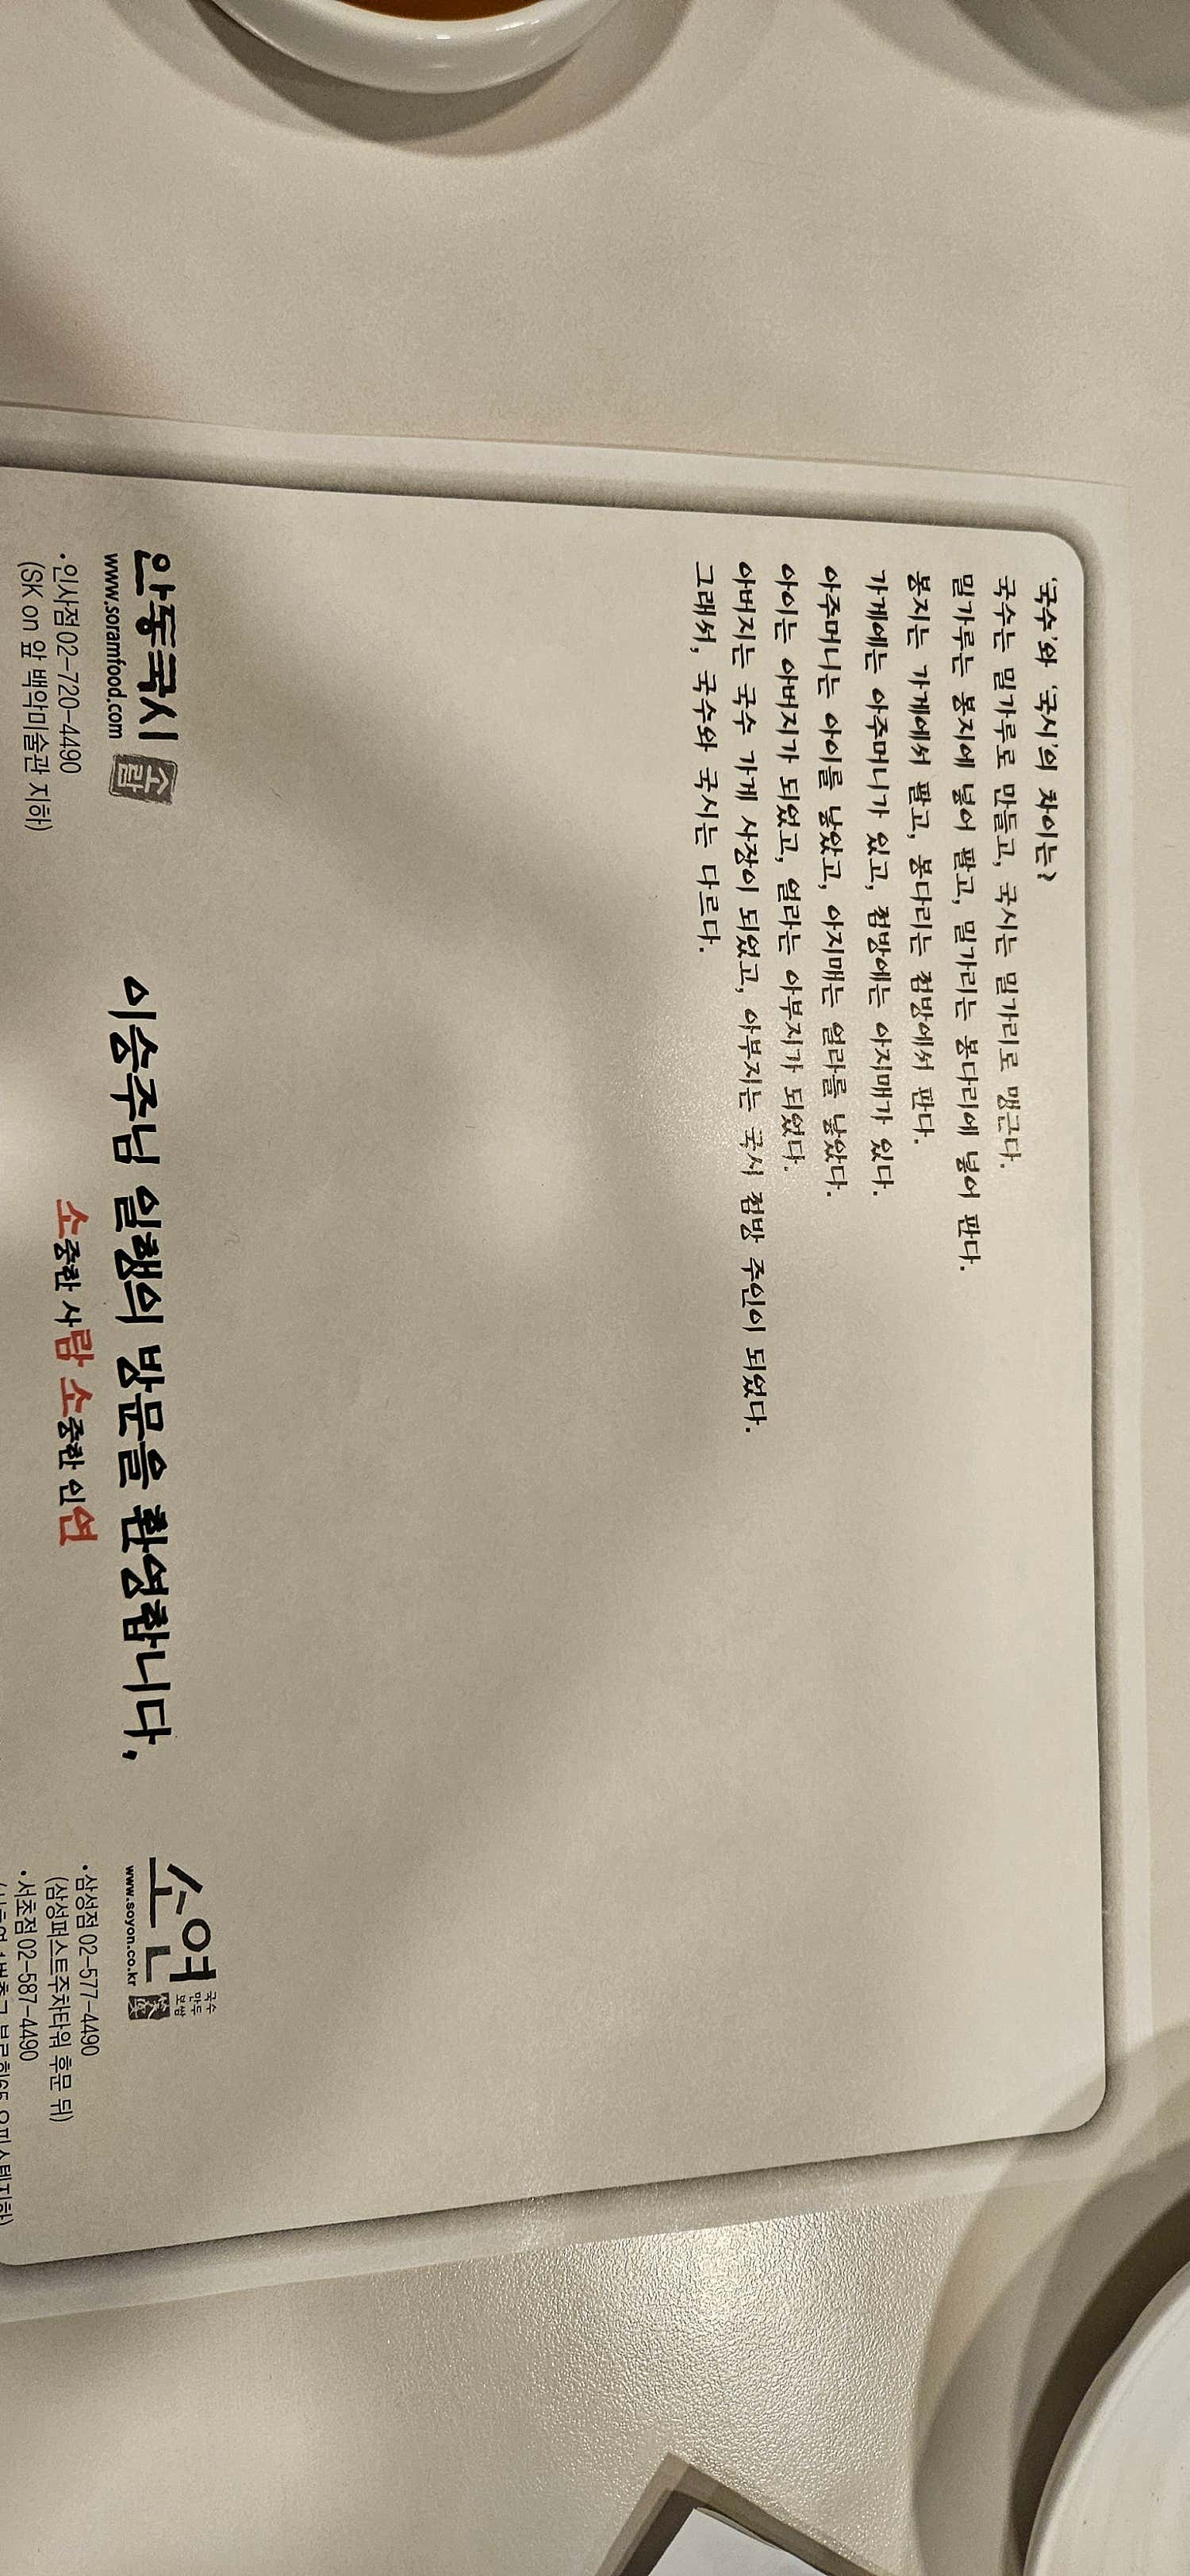 '국수'와 '국시'의 차이는?
국수는 밀가루로 만들고, 국시는 밀가리로 맹근다.
밀가루는 봉지에 넣어 팔고, 밀가리는 봉다리에 넣어 판다.
봉지는 가게에서 팔고, 봉다리는 점방에서 판다.
가게에는 아주머니가 있고, 점방에는 아지매가 있다.
아주머니는 아이를 낳았고, 아지매는 얼라를 낳았다.
아이는 아버지가 되었고, 얼라는 아부지가 되었다.
아버지는 국수 가게 사장이 되었고, 아부지는 국시 점방 주인이 되었다.
그래서, 국수와 국시는 다르다.
안동국시 소람
www.soramfood.com
•인사점 02-720-4490
(SK on 앞 백악미술관 지하)
이승주님 일행의 방문을 환영합니다.
소중한 사람 소중한 인연
소연 국수 만두 보쌈
www.soyon.co.kr
•삼성점 02-577-4490
(삼성퍼스트주차타워 후문 뒤)
•서초점 02-587-4490